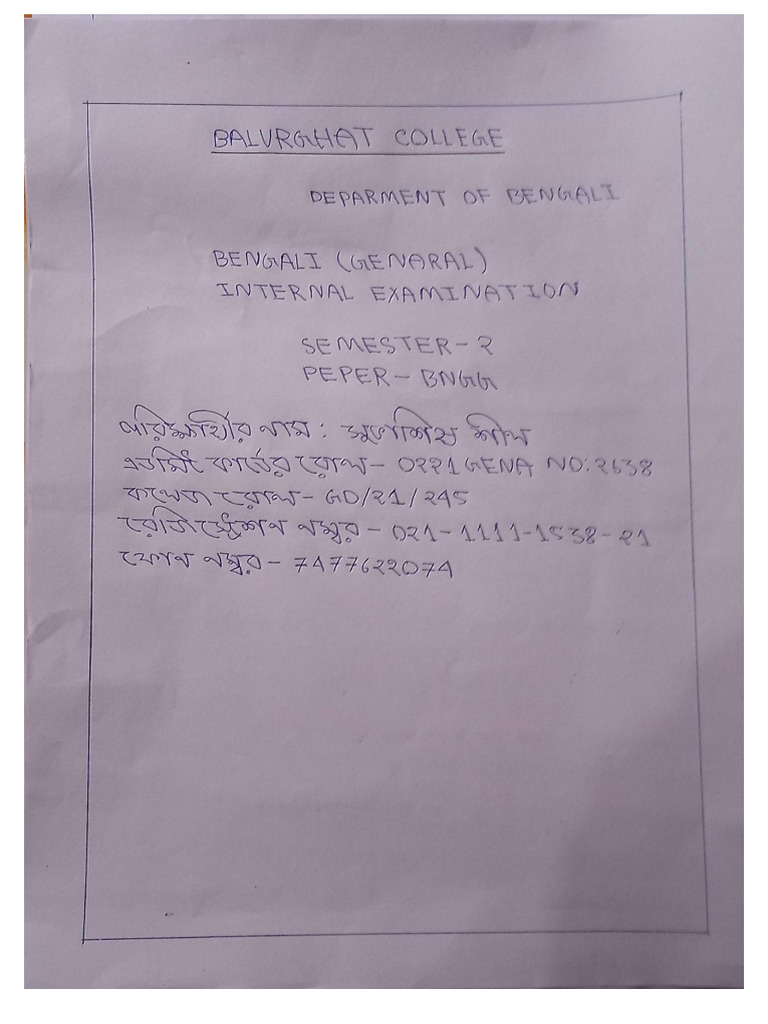 BALURGHAT COLLEGE
DEPARMENT OF BENGALI
BENGALI (GENARAL)
INTERNAL EXAMINATION
SEMESTER-2
PEPER-BNGG
পরিক্ষার্থীর নাম: শুভাশিষ শীল
এডমিট কার্ডের রোল- 0221GENA NO:2638
কলেজ রোল- GD/21/245
রেজিস্ট্রেশন নম্বর- 021-1111-1538-21
ফোন নম্বর- 7477622074